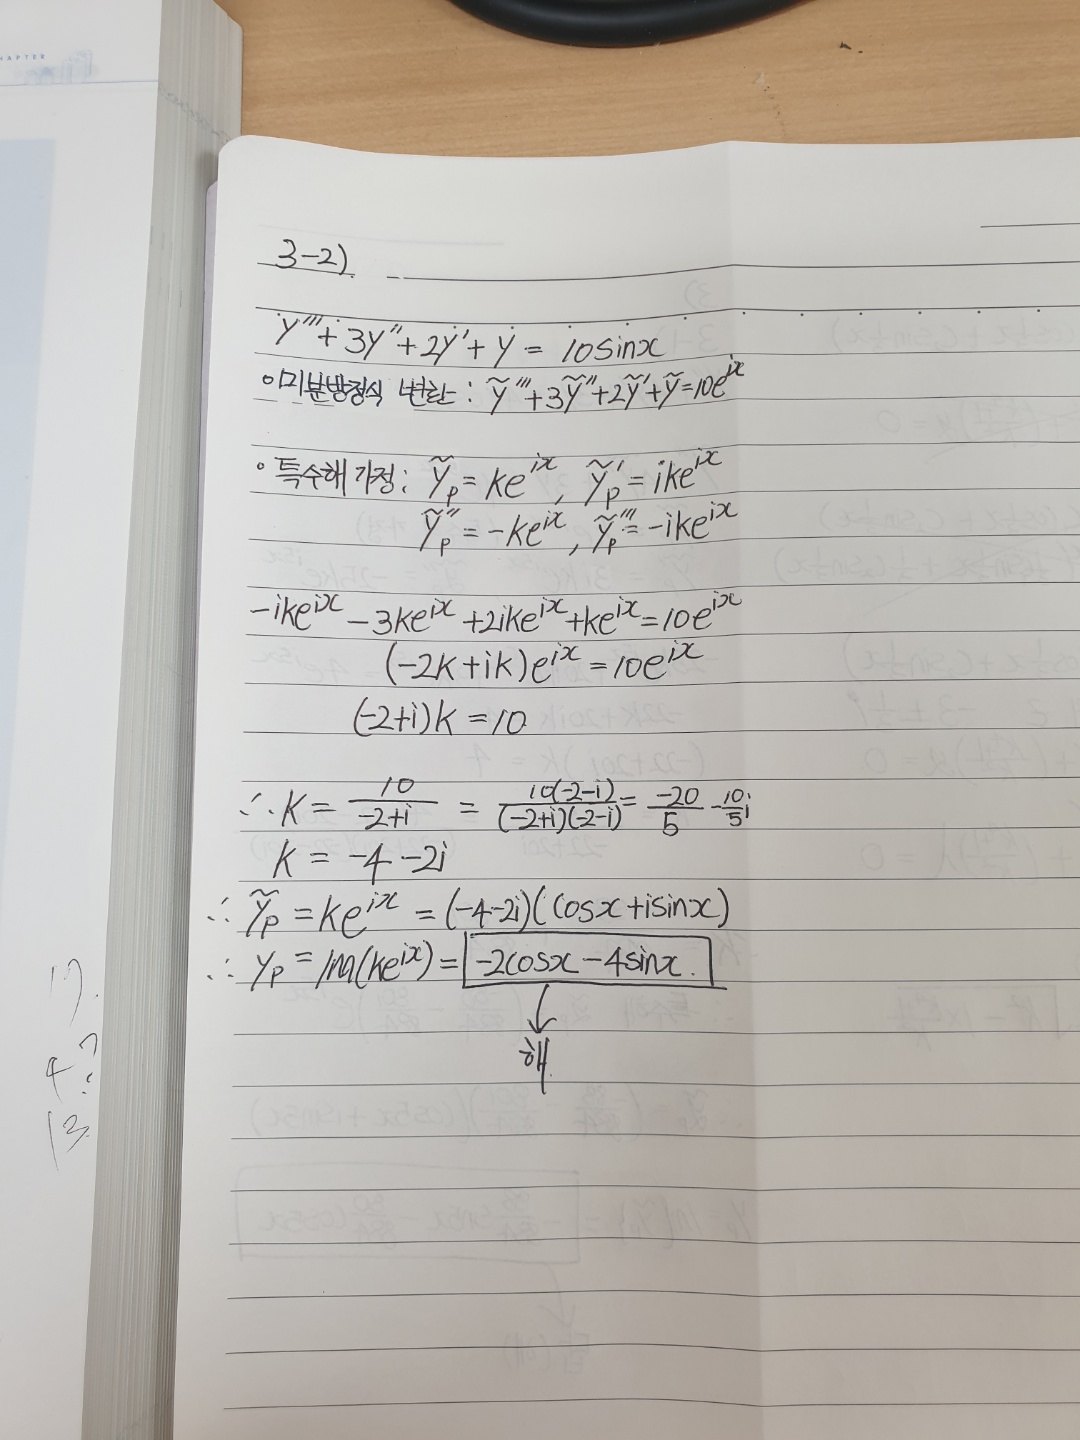 CHAPTER
3-2)
y''' + 3y'' + 2y' + y = 10sinx
◦미분방정식 변환 : ỹ''' + 3ỹ'' + 2ỹ' + ỹ = 10e^{ix}
◦ 특수해 가정 : ỹ_p = ke^{ix}, ỹ_p' = ike^{ix}
ỹ_p'' = -ke^{ix}, ỹ_p''' = -ike^{ix}
-ike^{ix} - 3ke^{ix} + 2ike^{ix} + ke^{ix} = 10e^{ix}
(-2k + ik)e^{ix} = 10e^{ix}
(-2+i)k = 10
∴ k = 10/(-2+i) = 10(-2-i)/(-2+i)(-2-i) = -20/5 - 10/5 i
k = -4 - 2i
∴ ỹ_p = ke^{ix} = (-4-2i)(cosx + isinx)
∴ y_p = Im(ke^{ix}) = -2cosx - 4sinx.
해
17.
4?
13.